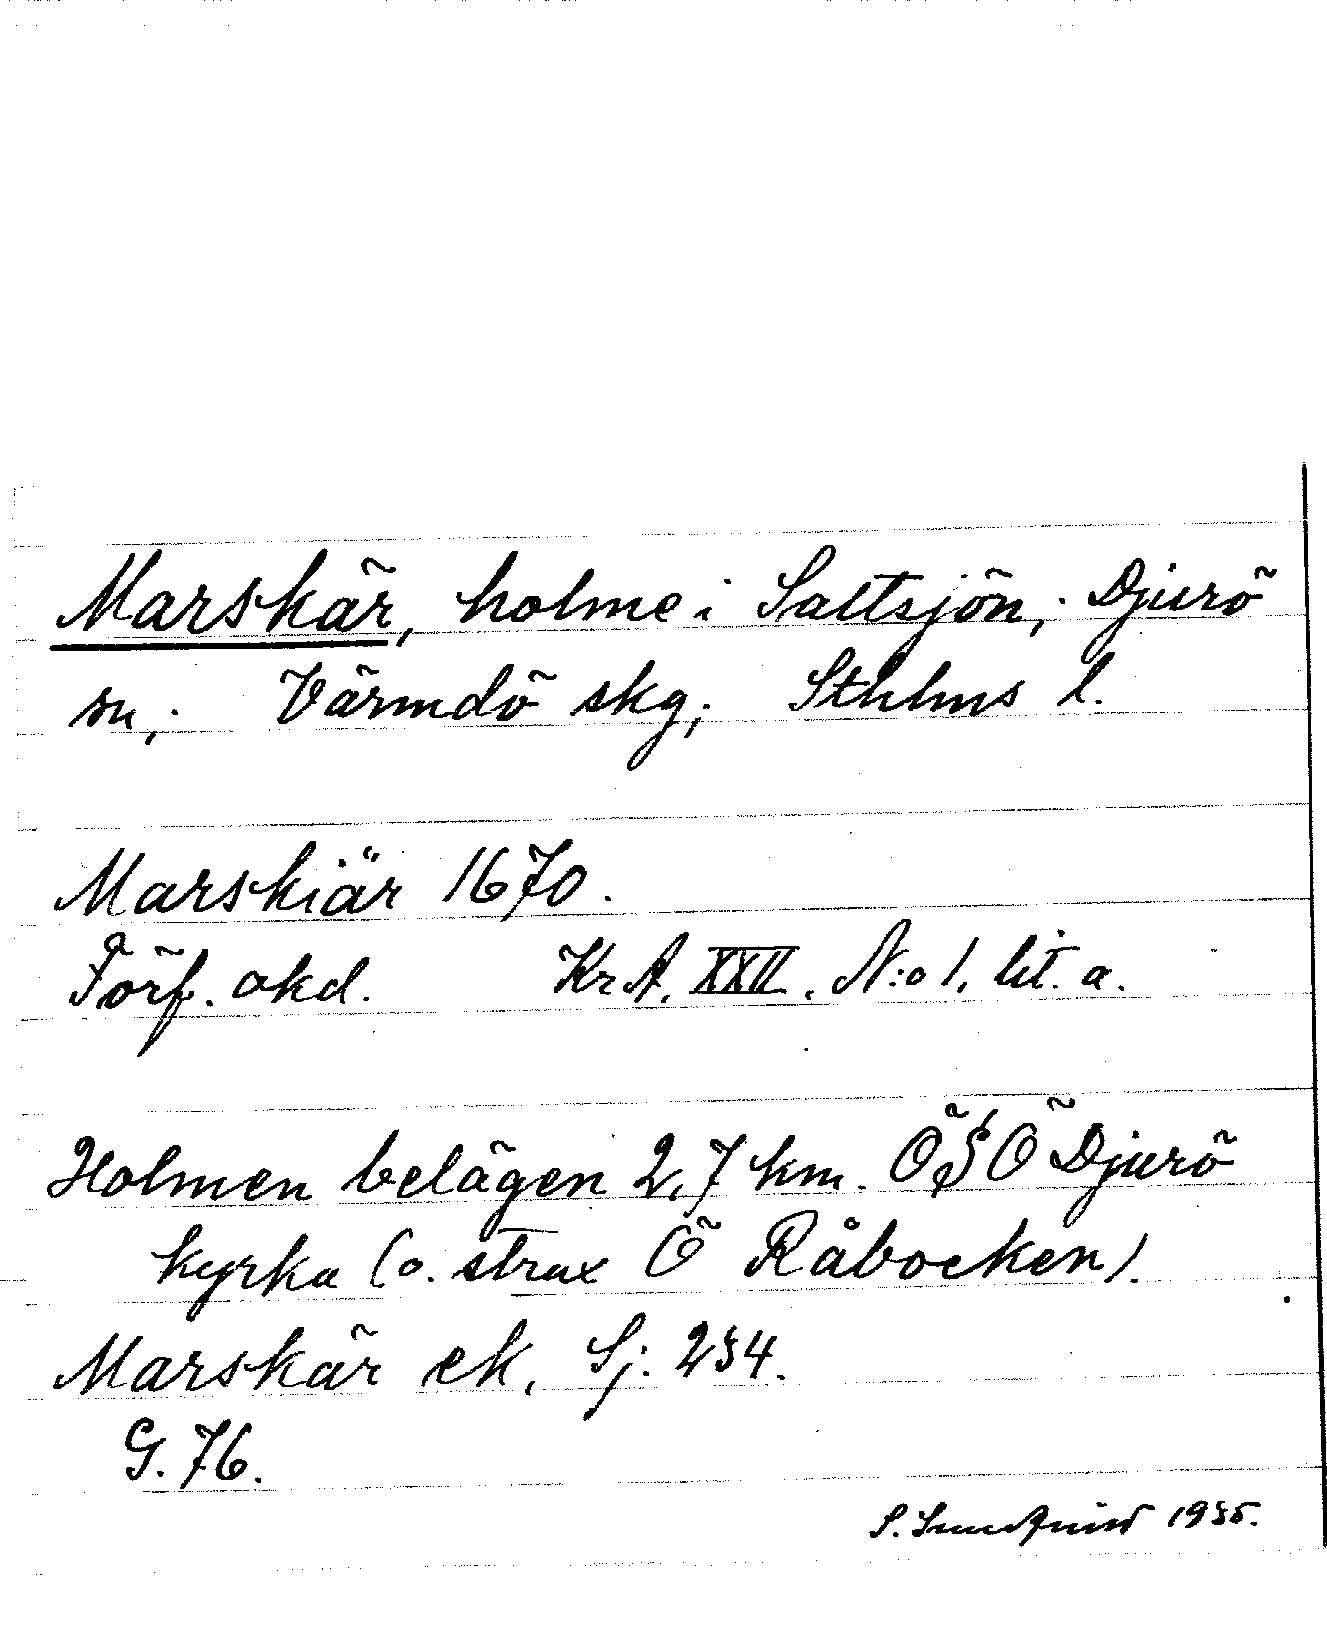 Marskär, holme i Saltsjön; Djurö
sn; Värmdö skg; Sthlms l.
Marskiär 1670.
Förf. okd. KrA. XXII. N:o 1. lit. a.
Holmen belägen 2,7 km. ÖSÖ Djurö
kyrka (o. strax Ö Råbocken).
Marskär ek. Sj. 234.
G. 76.
S. 1935.